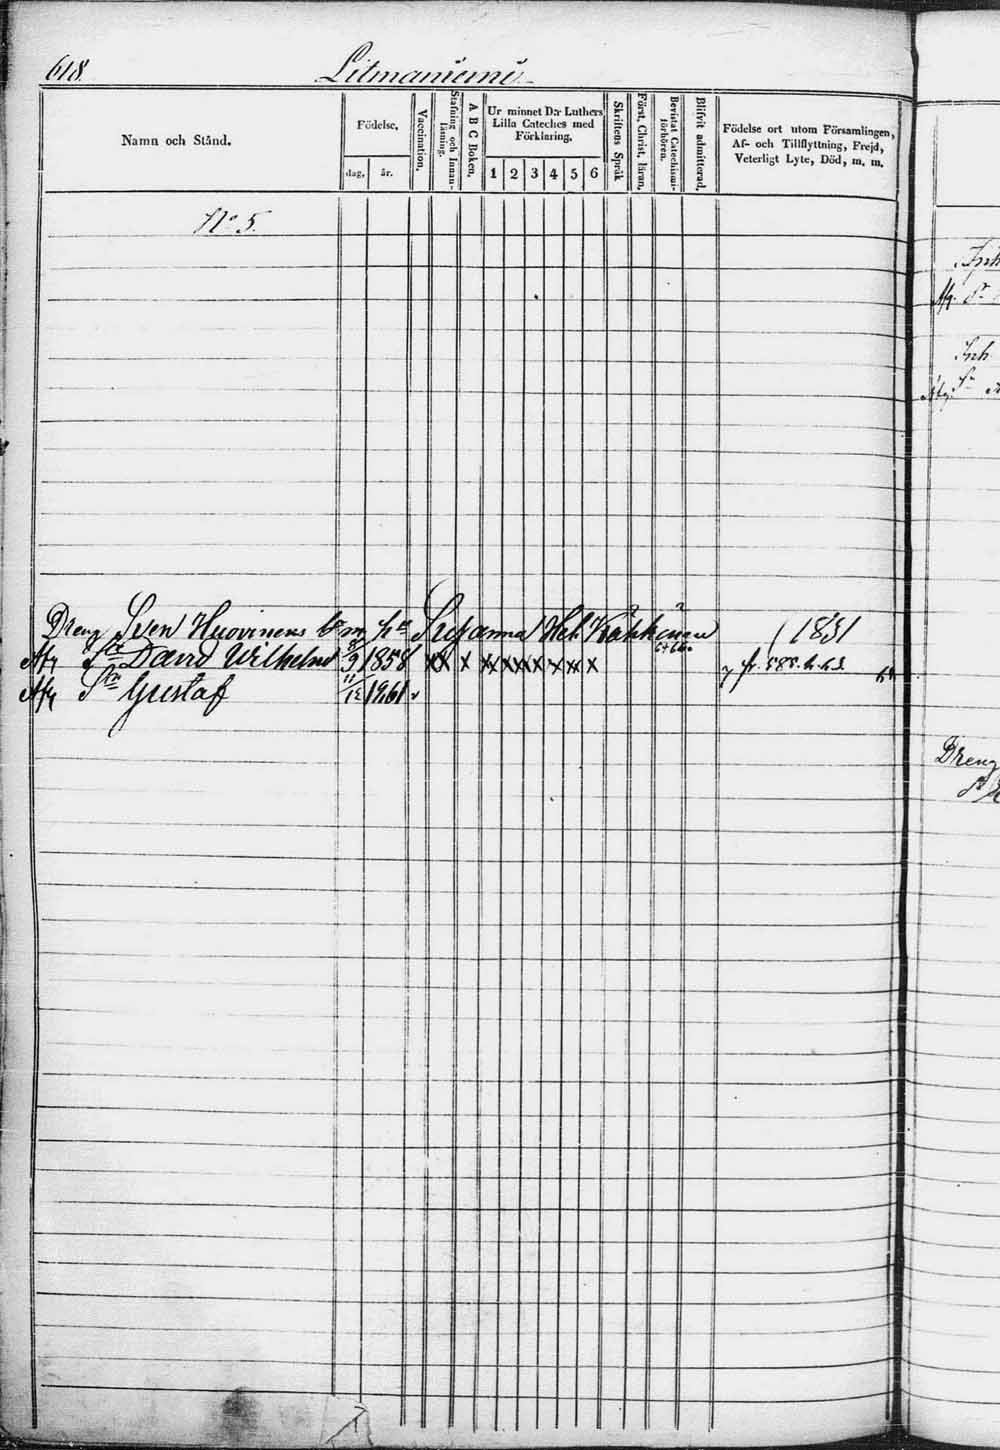 618.
Litmaniemi
Namn och Stånd.
Födelse,
dag, år.
Vaccination.
Stafning och Innanläsning.
A B C Boken.
Ur minnet D:r Luthers Lilla Cateches med Förklaring.
1 2 3 4 5 6
Skriftens Språk
Först. Christ. läran.
Bevistat Catechismiförhören.
Blifvit admitterad.
Födelse ort utom Församlingen, Af- och Tillflyttning, Frejd, Veterligt Lyte, Död, m. m.
No 5.
Inh
Afg.
Inh
Dreng Sven Huovinens Susanna 1831
Afg David Wilhelm 1858 x x x x x x x x x x
Afg Gustaf 11/12 1861
Dreng